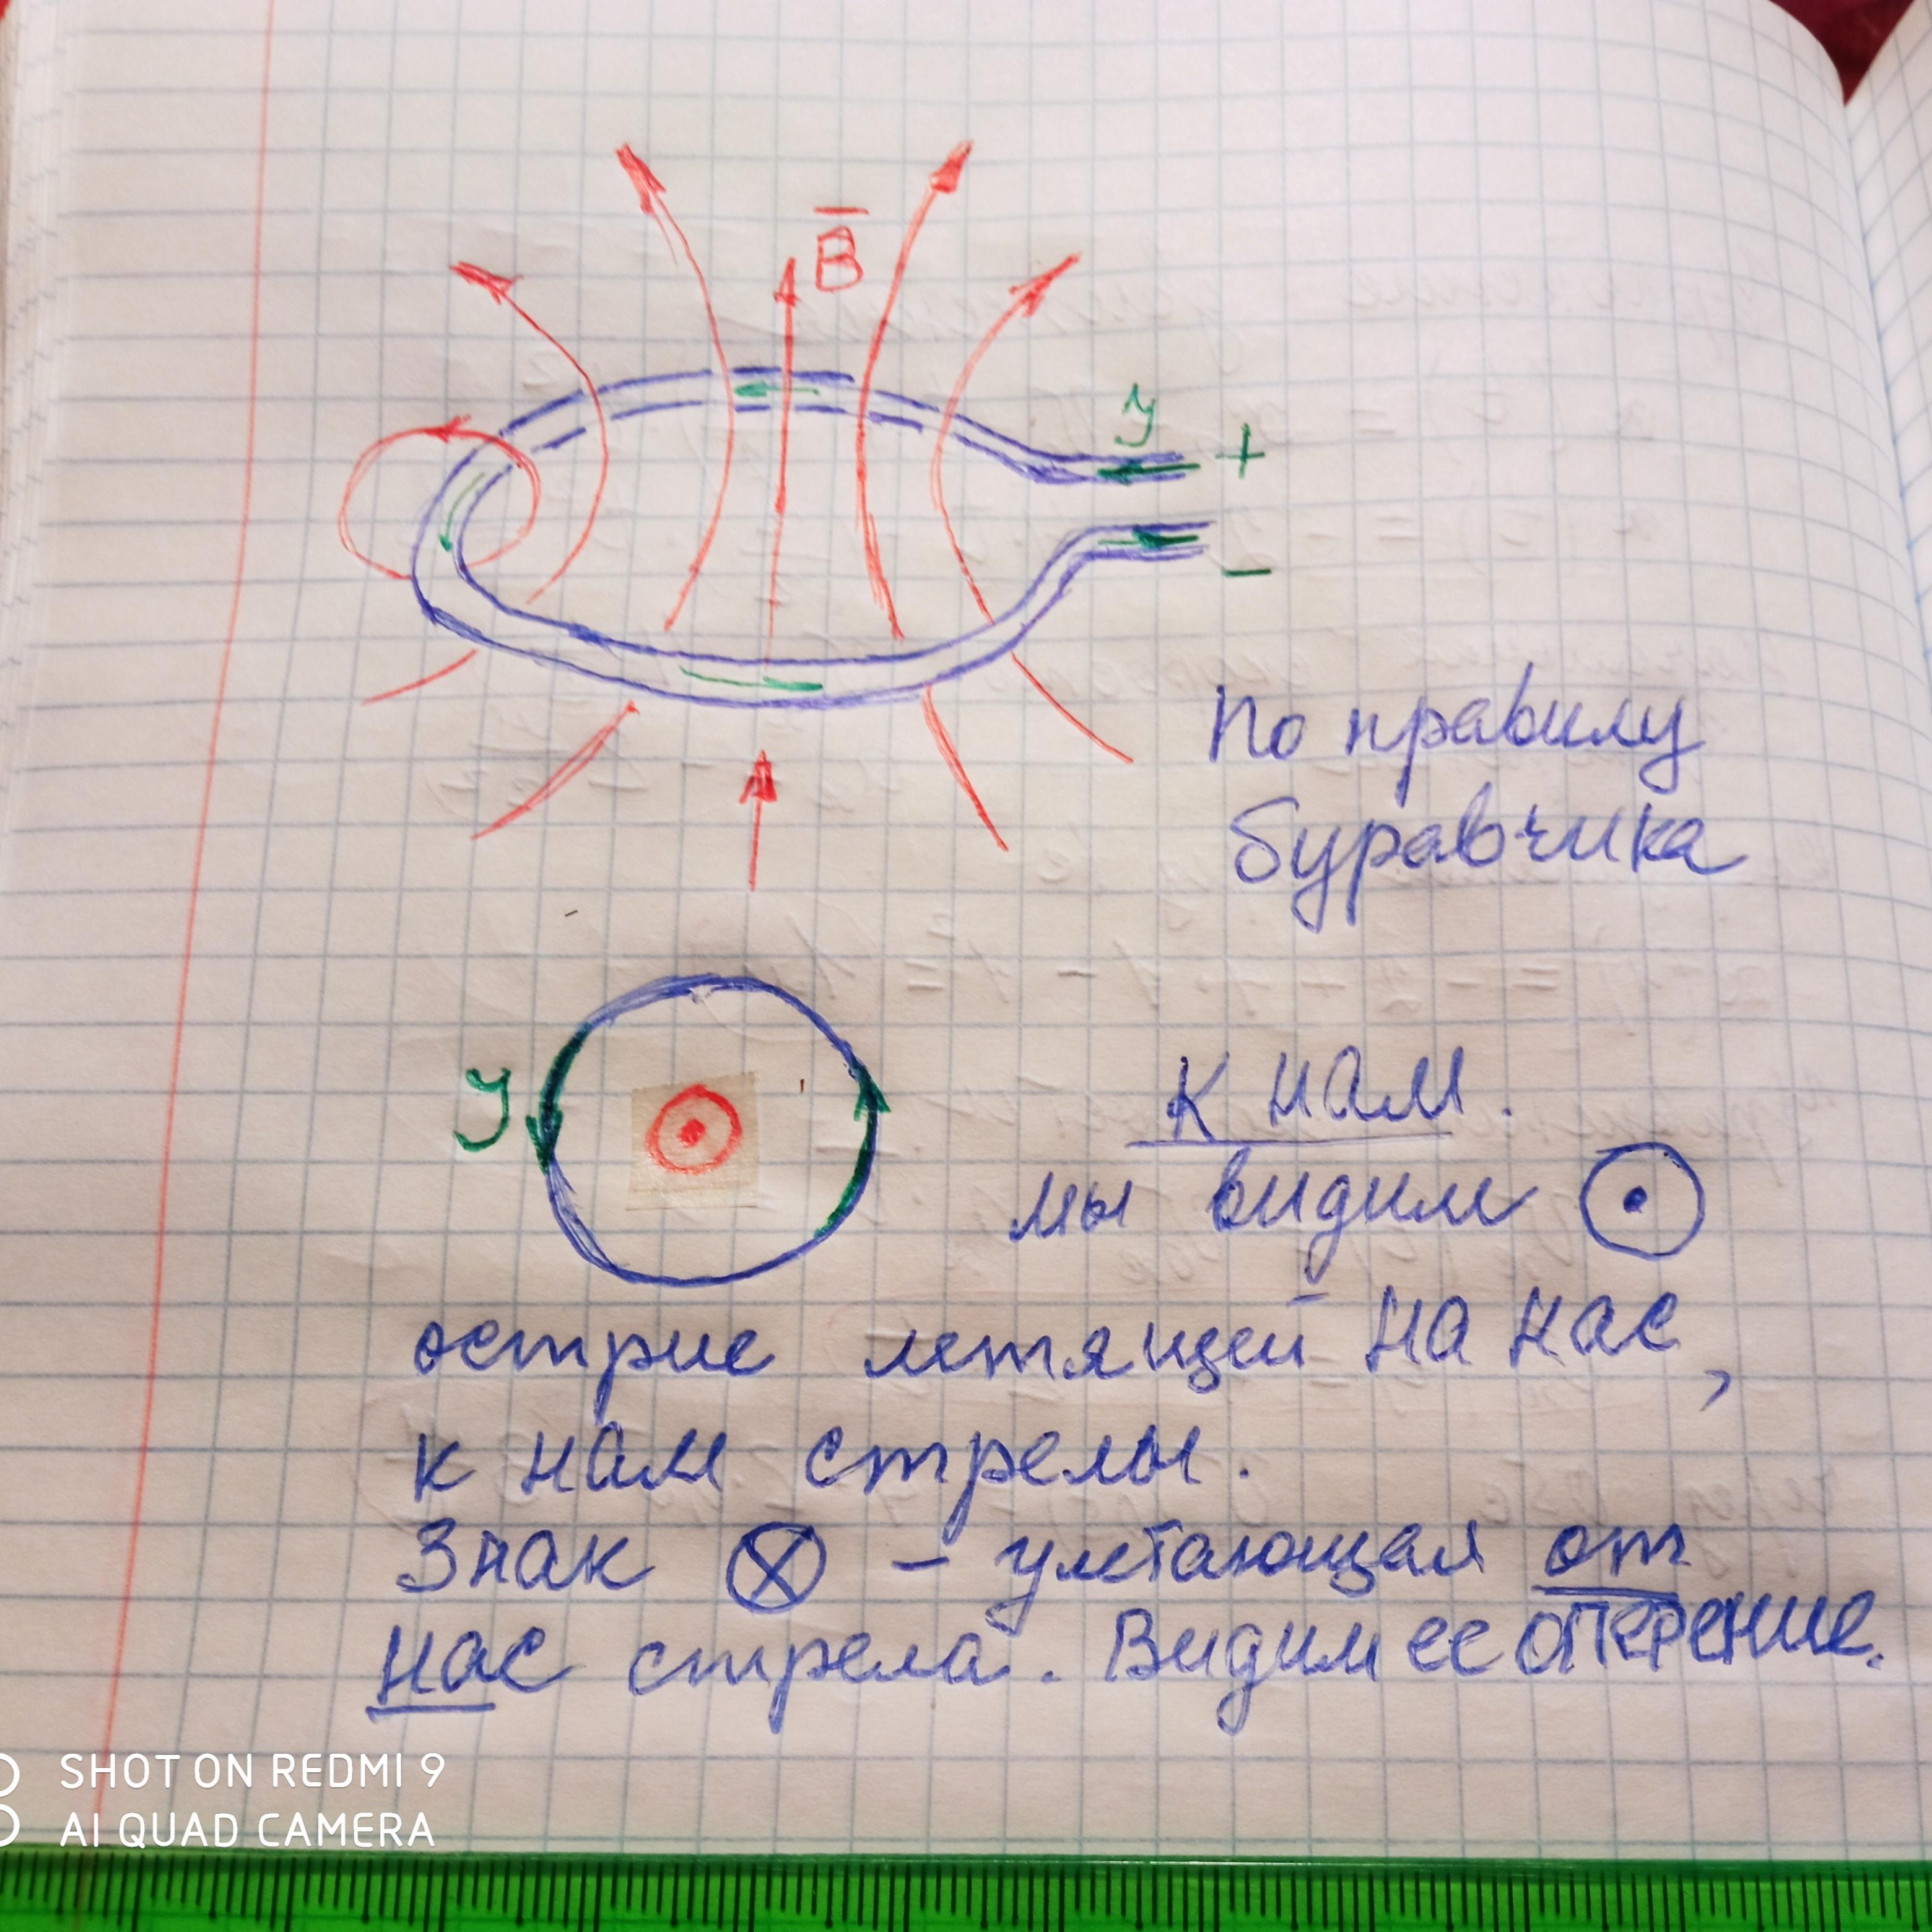 B̅
У +
−
По правилу
буравчика
У
к нам.
мы видим ⊙
острие летящей на нас,
к нам стрелы.
Знак ⊗ – улетающая от
нас стрела. Видим ее оперение.
SHOT ON REDMI 9
AI QUAD CAMERA